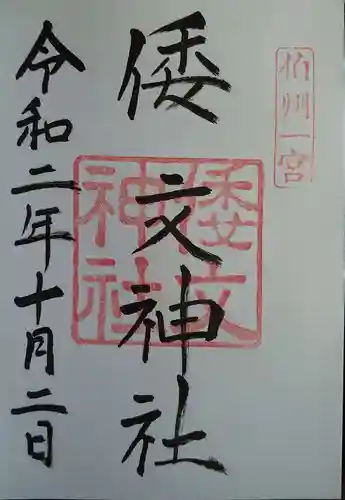 伯州一宮
倭文神社
倭文神社
令和二年十月二日